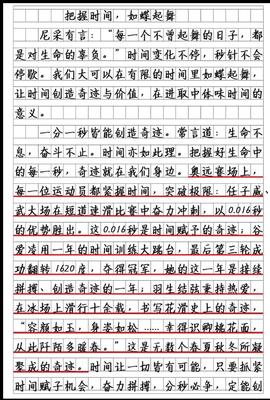 把握时间，如蝶起舞
尼采有言：“每一个不曾起舞的日子，都
是对生命的辜负。”时间变化不停，秒针不会
停歇。我们大可以在有限的时间里如蝶起舞，
让时间创造奇迹与价值，在进取中体味时间的
意义。
一分一秒皆能创造奇迹。常言道：生命不
息，奋斗不止。时间亦如此理。把握好生命中
的每一秒，奇迹就在我们身边。奥运赛场上，
每一位运动员都紧握时间，突破极限：任子威、
武大靖在短道速滑比赛中奋力冲刺，以0.016秒
的优势胜出。这0.016秒是时间赋予的奇迹；谷
爱凌用一年的时间训练大跳台，最后第三轮成
功翻转1620度，夺得冠军，她的这一年是接续
拼搏、创造奇迹的一年；羽生结弦秉持热爱，
在冰场上滑行十余载，书写花滑史上的奇迹，
“容颜如玉，身姿如松……幸得识卿桃花面，
从此阡陌多暖春。”这是无数个春夏秋冬所凝
聚成的奇迹。时间让一切皆有可能，只要抓紧
时间赋予机会，奋力拼搏，分秒必争，定能创